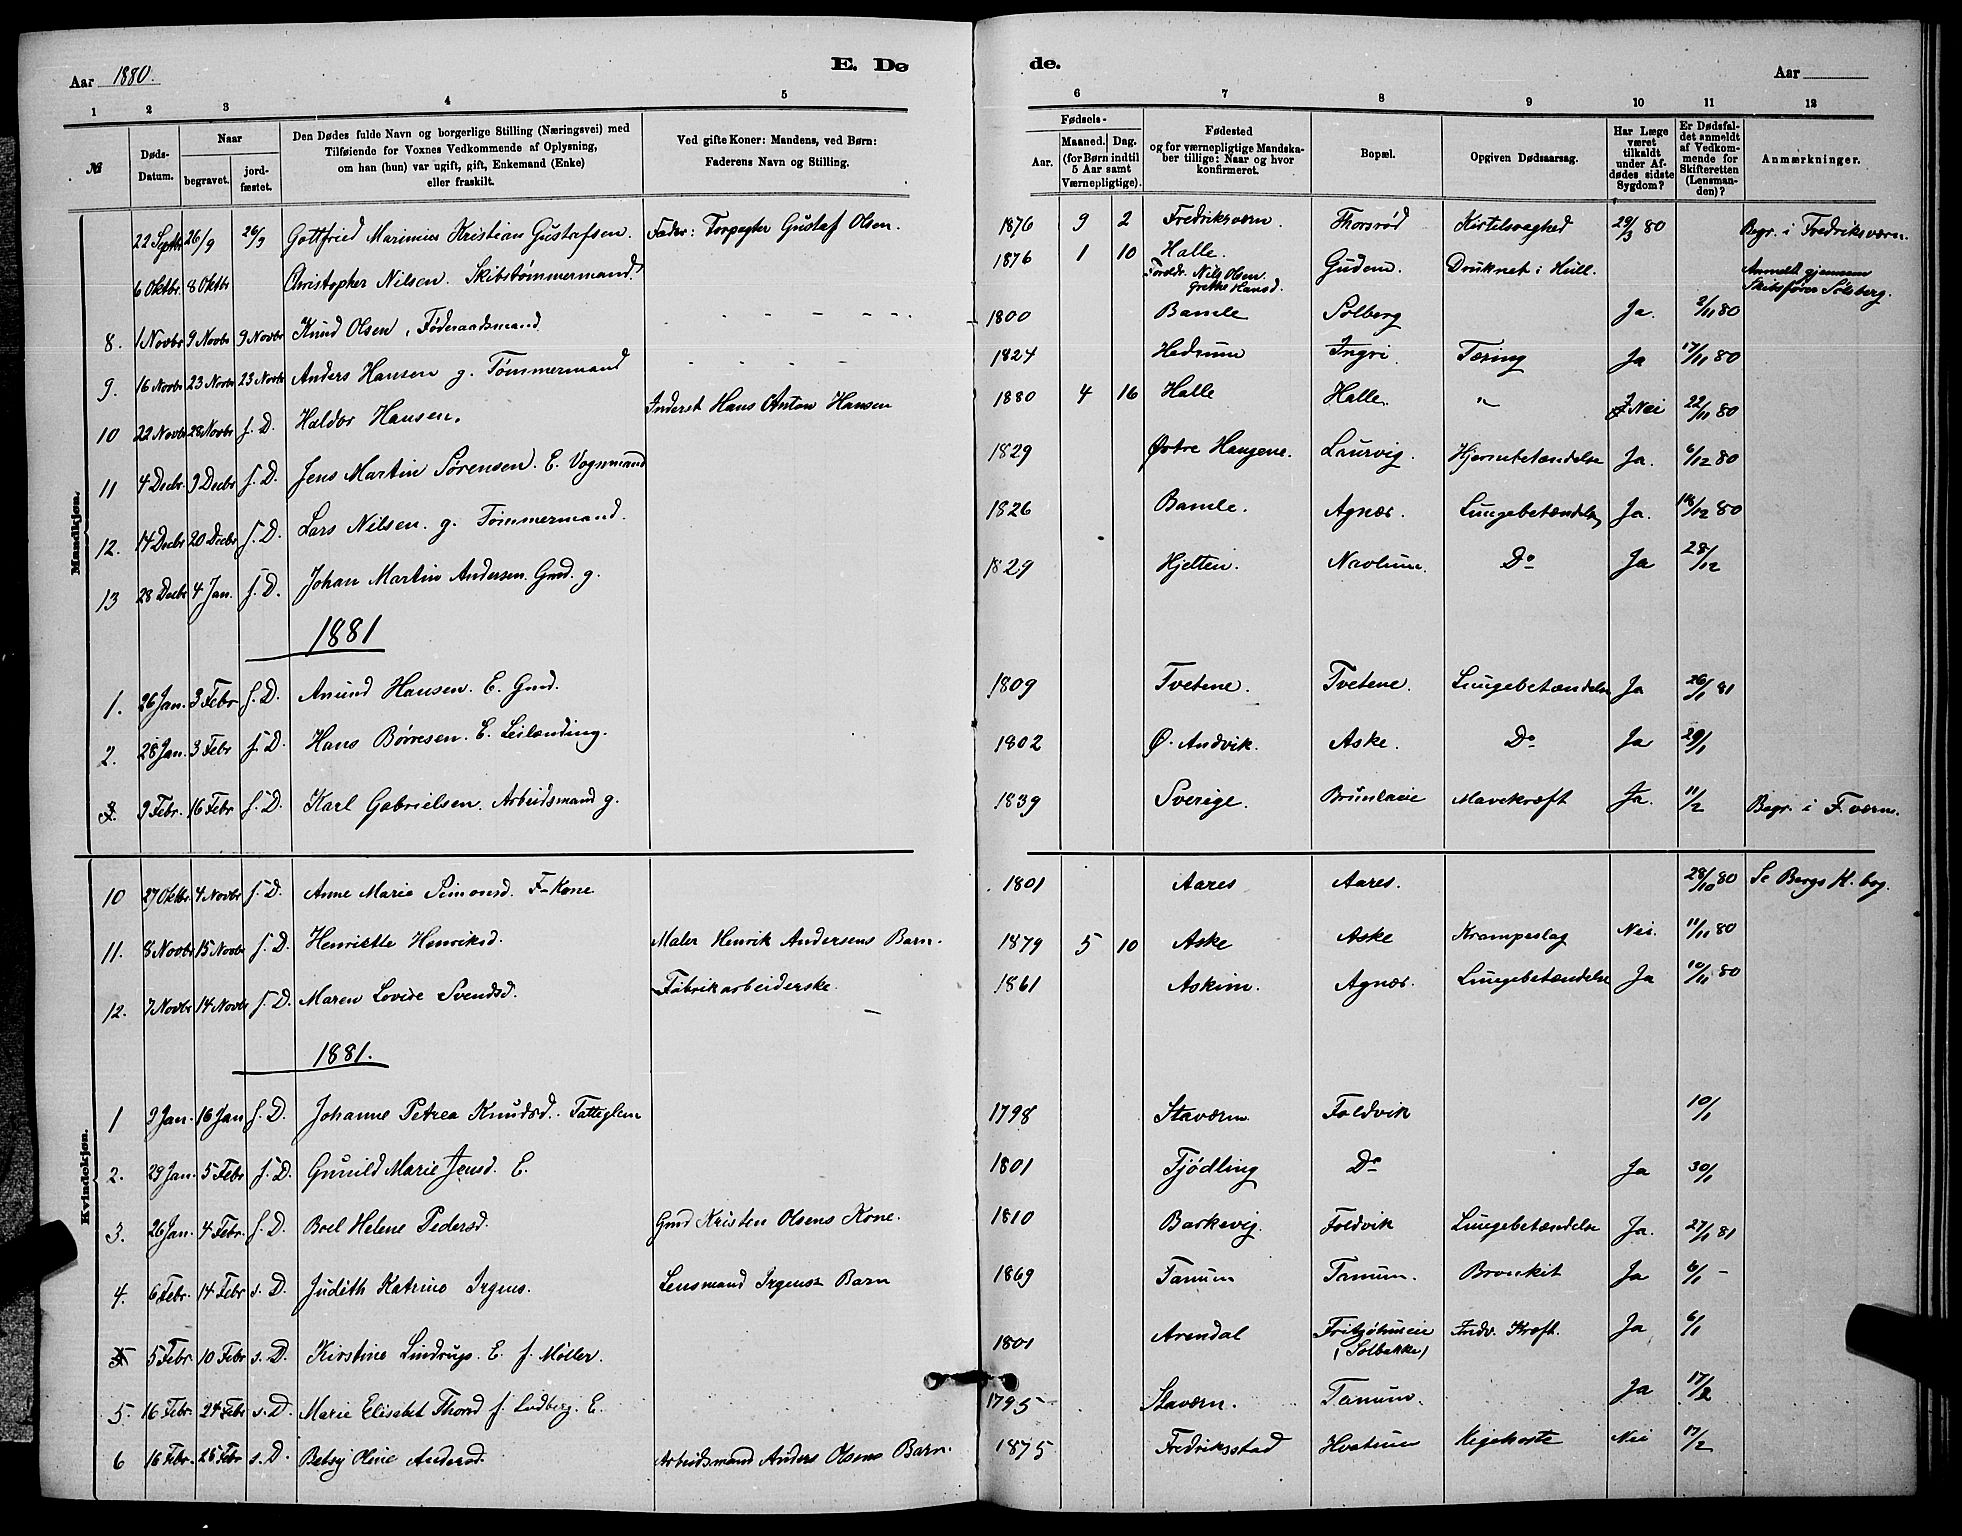 Aar 1880.
E. Dø
de.
Aar
1 2 3 4 5 6 7 8 9 10 11 12
№
Døds-Datum.
Naar
begravet.
jordfæstet.
Den Dødes fulde Navn og borgerlige Stilling (Næringsvei) med
Tilføiende for Voxnes Vedkommende af Oplysning,
om han (hun) var ugift, gift, Enkemand (Enke)
eller fraskilt.
Ved gifte Koner: Mandens, ved Børn:
Faderens Navn og Stilling.
Fødsels-
Aar.
Maaned. Dag.
(for Børn indtil
5 Aar samt
Værnepligtige).
Fødested
og for værnepligtige Mandska-
ber tillige: Naar og hvor
konfirmeret.
Bopæl.
Opgiven Dødsaarsag.
Har Læge
været
tilkaldt
under Af-
dødes sidste
Sygdom?
Er Dødsfal-
det anmeldt
af Vedkom-
mende for
Skifteretten
(Lensman-
den)?
Anmærkninger.
Mandkjøn.
22 Septbr 26/9 26/9 Gottfried Marinius Kristian Gustafsen. Fader: Forpagter Gustaf Olsen. 1876 9 2 Fredriksværn. Thorsrød Kirtelsvaghed 29/3 80 Begr. i Fredriksværn.
6 Oktbr. 8 Oktbr Christopher Nilsen. Skibstømmermand 1876 1 10 Halle. Foreldr. Nils Olsen. Grethe Hansd. Gudem. Druknet i Hull. Anmeldt gjennem Skibsfører Solberg.
8. 1 Novbr 9 Novbr 9 Novbr Knud Olsen, Føderaadsmand 1800 Bamle Solberg Ja. 2/11 80
9. 16 Novbr 23 Novbr 23 Novbr Anders Hansen g. Tømmermand 1824 Hedrum Ingri Tæring Ja 17/11 80
10 22 Novbr 28 Novbr s. D. Haldor Hansen. Inderst Hans Anton Hansen 1880 4 16 Halle Halle. " Nei 22/11 80
11 4 Decbr. 9 Decbr s. D. Jens Martin Sørensen. E. Vognmand 1829 Østre Haugene. Laurvig. Hjernebetændelse Ja. 6/12 80
12. 14 Decbr 20 Decbr s. D. Lars Nilsen. g. Tømmermand. 1826 Bamle. Agnæs. Lungebetændelse Ja. 18/12 80
13 28 Decbr 4 Jan. s. D. Johan Martin Andersen. Gmd. g. 1829 Hjelten. Navlum. Do Ja 28/12
1881
1. 26 Jan. 3 Febr s. D. Amund Hansen. E. Gmd. 1809 Tvetene. Tvetene. Lungebetændelse Ja 26/1 81
2. 28 Jan. 3 Febr s. D. Hans Børresen. E. Leilending. 1802 Ø. Andvik. Aske. Do Ja 29/1
9 Febr. 16 Febr s. D. Karl Gabrielsen. Arbeidsmand g. 1839 Sverige. Brunlanie Mavekræft Ja. 11/2 Begr. i F. værn.
Kvindekjøn.
10 27 Oktbr. 4 Novbr s. D. Anne Marie Simonsd. F-Kone 1801 Aares Aares. 28/10 80 Se Bergs K. bog.
11. 8 Novbr 15 Novbr s. D. Henriette Henriksd. Maler Henrik Andersens Barn. 1879 5 10 Aske Aske Krampeslag Nei. 11/11 80
12. 7 Novbr 14 Novbr s. D. Maren Lovise Svendsd. Fabrikarbeiderske. 1861 Askim. Agnæs. Lungebetændelse Ja 10/11 80
1881.
1 9 Jan. 16 Jan s. D. Johanne Petrea Knudsd. Fattiglem 1798 Staværn. Foldvik 10/1
2. 29 Jan. 5 Febr s. D. Gunild Marie Jensd. E. 1801 Tjødling Do Ja 30/1
3. 26 Jan 4 Febr. s. D. Boel Helene Pedersd. Gmd Kristen Olsens Kone. 1810 Barkevig. Foldvik Lungebetændelse Ja. 27/1 81
4. 6 Febr. 14 Febr s. D. Judith Katrine Irgens. Lensmand Irgens's Barn 1869 Tanum Tanum. Bronkit Ja 6/1 -
5 Febr 10 Febr s. D. Kirstine Lindrup. E. f. Møller. 1801 Arendal Fritzøhuseie (Solbakke) Indv. Kræft. Ja 6/1
5. 16 Febr. 24 Febr s. D. Marie Elisabet Thorsd f. Lodberg. E. 1795 Staværn. Tanum. Ja 17/2
6 16 Febr. 25 Febr s. D. Betsy Oline Andersd. Arbeidsmand Anders Olsens Barn. 1875 Fredriksstad Hvatum Kigehoste Nei 17/2